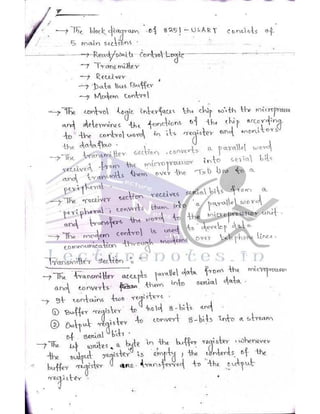 → The block diagram of 8251 - USART consists of
5 main sections.
→ Read/Write Control Logic
→ Transmitter
→ Receiver
→ Data Bus Buffer
→ Modem Control
→ The control logic interfaces the chip with the microprocessor
and determines the functions of the chip according
to the control word in its register and monitors
the dataflow.
→ The transmitter section converts a parallel word
received from the microprocessor into serial bits
and transmits them over the TxD line to a
peripheral.
→ The receiver section receives serial bits from a
peripheral, converts them into a parallel word
and transfers the word to the microprocessor unit.
→ The modem control is used to data
communication through modems over telephone lines.
Lecturenotes.in
Transmitter Section :
→ The transmitter accepts parallel data from the microprocessor
and converts them into serial data.
→ It contains two registers.
① Buffer register to hold 8-bits and
② Output register to convert 8-bits into a stream
of serial bits.
→ The writes a byte in the buffer register whenever
the output register is empty, the contents of the
buffer register are transferred to the output
register.